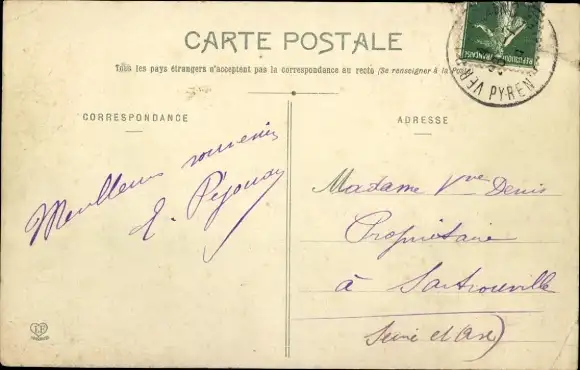 CARTE POSTALE
Tous les pays étrangers n'acceptent pas la correspondance au recto (Se renseigner à la Poste)
CORRESPONDANCE
ADRESSE
Meilleurs souvenirs
E.
Madame Vve Denis
Propriétaire
à Sartrouville
Seine et Oise)
REPUBLIQUE FRANÇAISE
PYREN